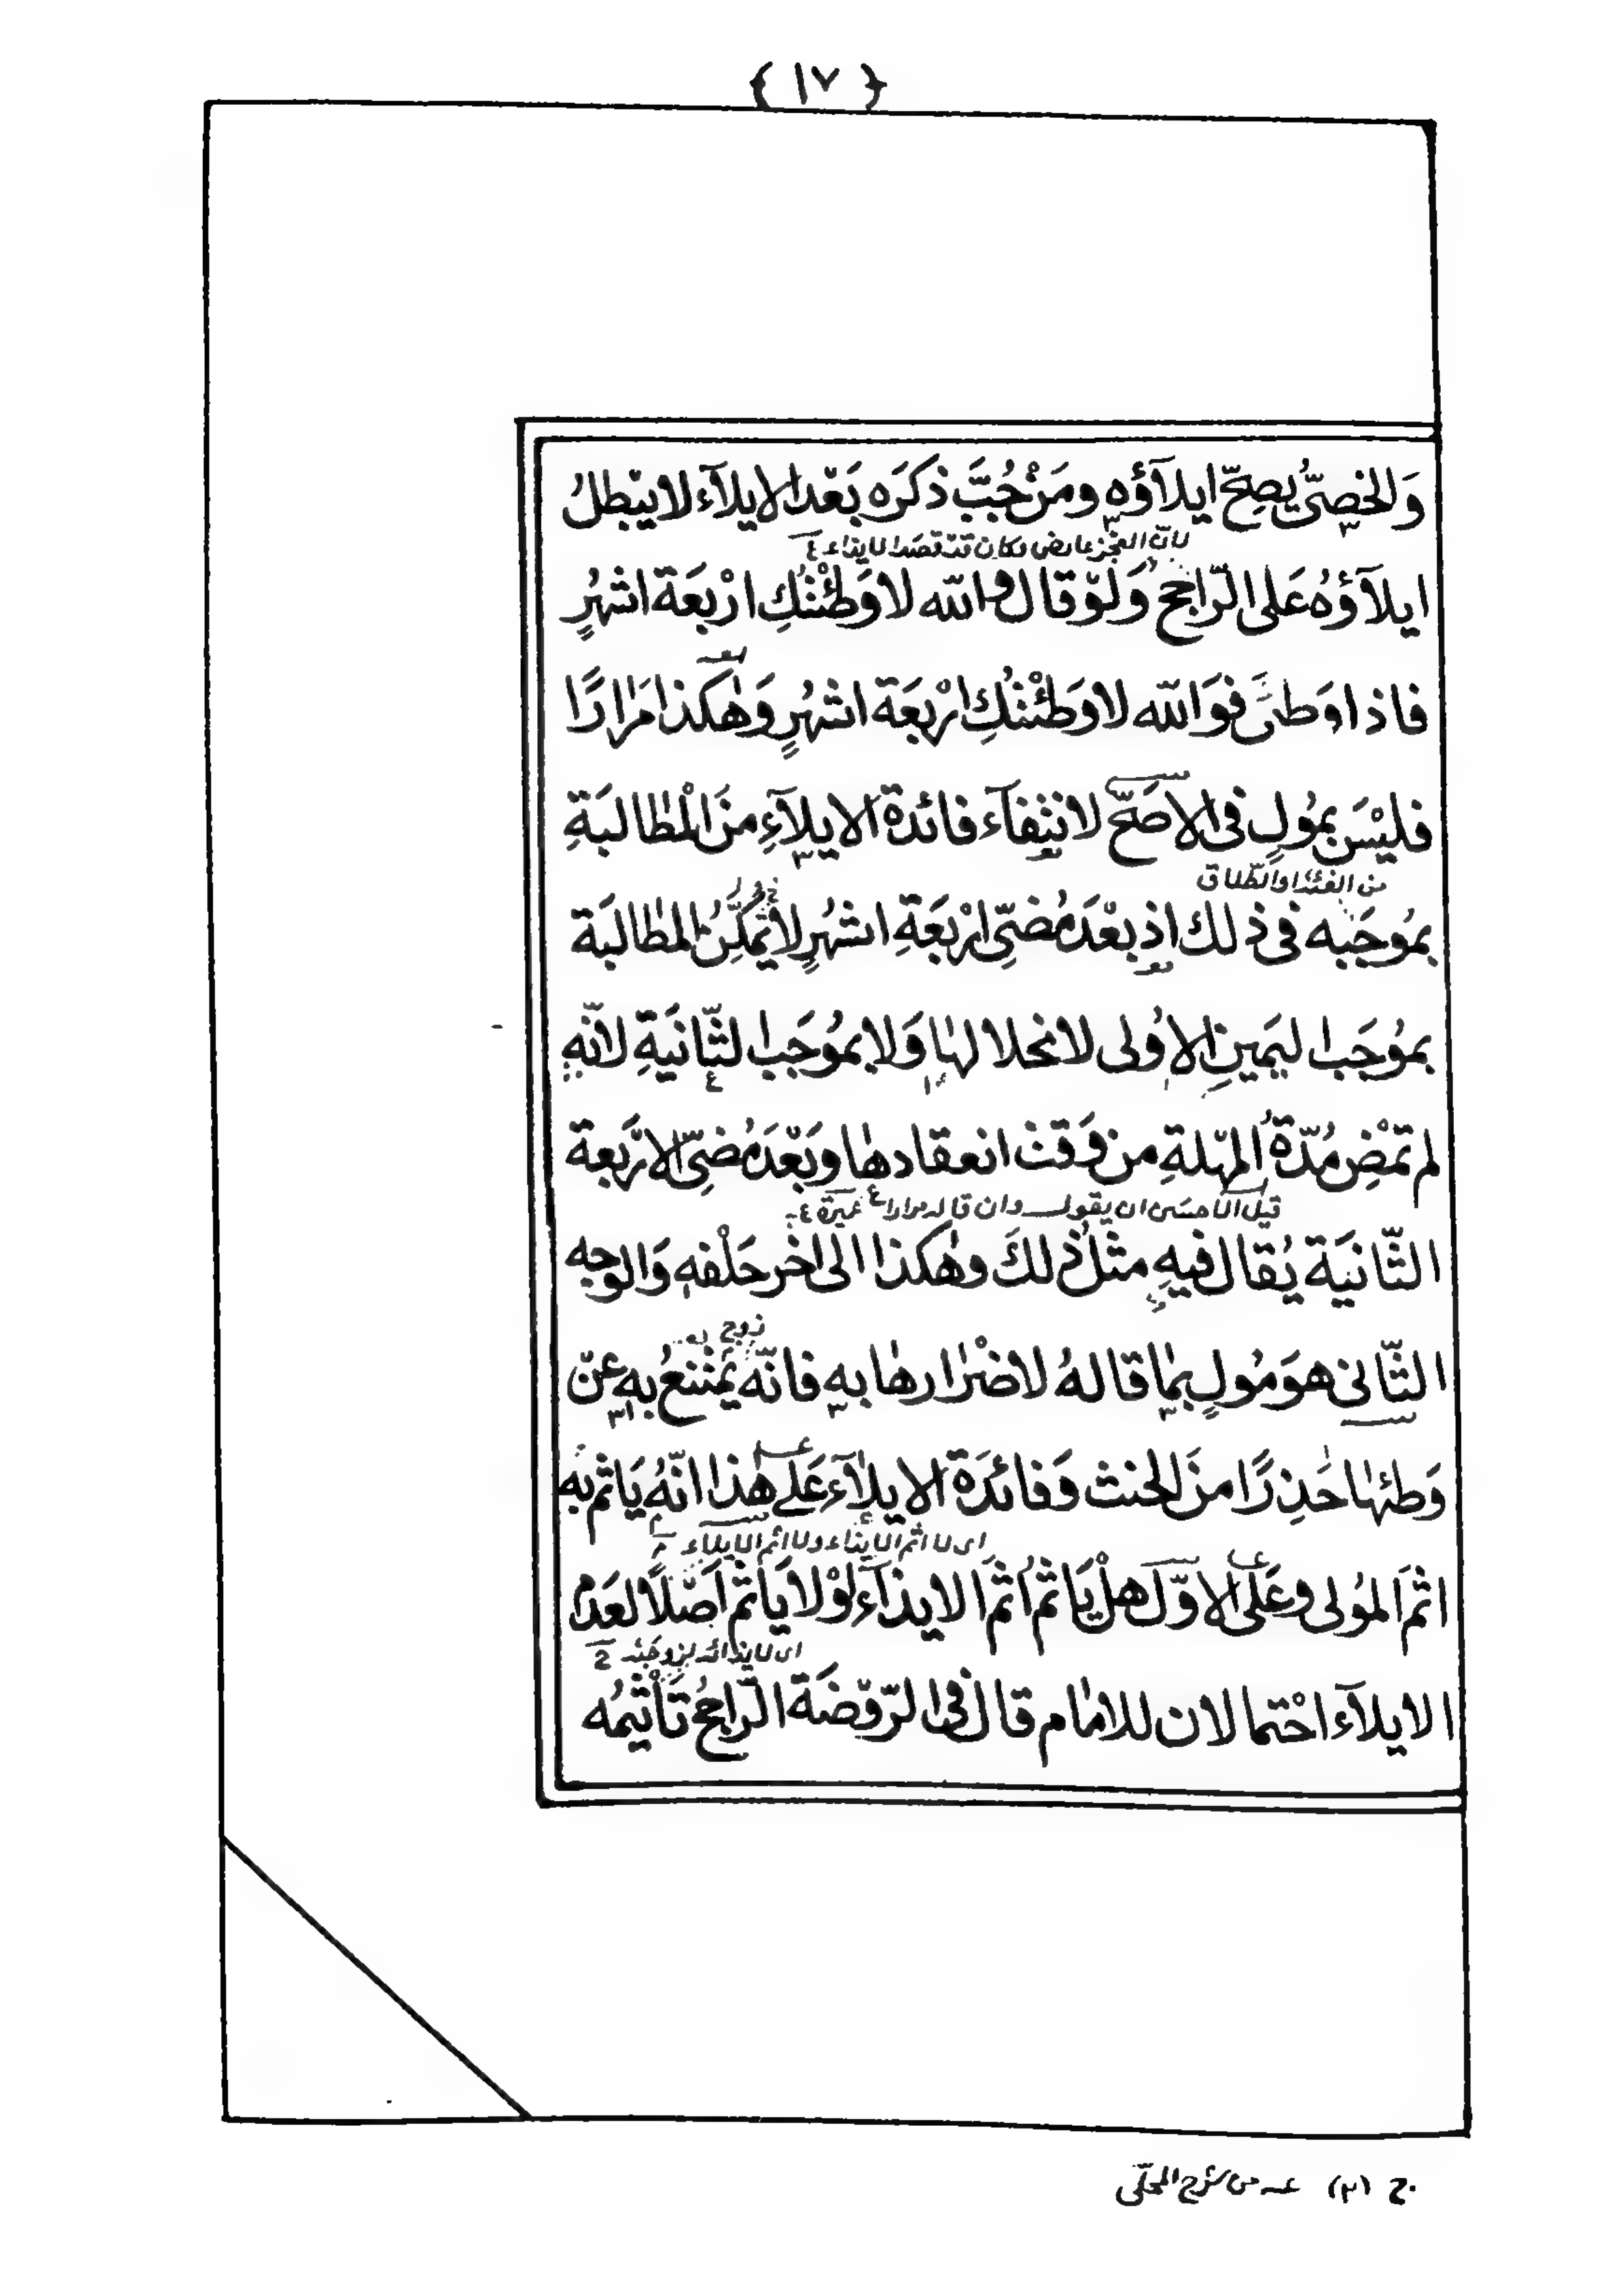 { ١٧ }
وَالخصِىُّ يُصِحّ ايلآؤُه ومَنْ جُبَّ ذكَرَه بَعْد الايلآء لا يبْطلُ
لانّ العجز عارض وكان قد قصد الايذاء ٤
ايلآؤُهُ عَلى الرّاجح وَلَوْ قال والله لا وَطئْتُكِ ارْبَعَة اشهُرٍ
فاذا وَطئَ فوَالله لا وَطئْتُكِ ارْبَعَة اشهُرٍ وَهٰكذا مرٰارًا
فليْسَ بمُولٍ فى الاصَحّ لانتفآء فائدة الايلآءِ منَ الْمطالبَةِ
من الفيئة او الطّلاق
بمُوجَبه فى ذلك اذ بعْدَ مُضىّ ارْبَعَةِ اشهُرٍ لا تمكنُ المطالبَة
بمُوجَب اليَمينِ الاُولى لانحلالهٰا وَلا بمُوجَب الثّانيَةِ لانّه
لم تمْضِ مُدّةُ المهْلةِ من وَقت انعقادهٰا وبَعْدَ مُضىّ الارْبَعة
قيل الاحسن ان يقول وان قاله مرارا ع عميرة ٤
الثّانيَة يُقال فيهِ مثلُ ذٰلكَ وهٰكذا الى اٰخر حَلْفه وَالوجه
زوج
الثّانى هوَ مُولٍ بمٰا قالهُ لاضْرٰارهٰا به فانّه يَمتنعُ به عنْ
وَطئهٰا حَذرًا منَ الحنث وَفائدَة الايلآء عَلى هٰذا انّهُ يَاثم به
اى لا اثم الايذاء ولا اثم الايلآء
اثمَ المُولى وعَلَى الاوّل هلْ يَاثمُ اثمَ الايذآء اوْ لا يَاثم اصْلًا لعَدم
اى لايذائه لزوجته ح
الايلآء احْتمالان للامٰام قال فى الرّوْضَة الرّاجحُ تَأثيمُه
ج (٣) عـ من شرح المحلّى